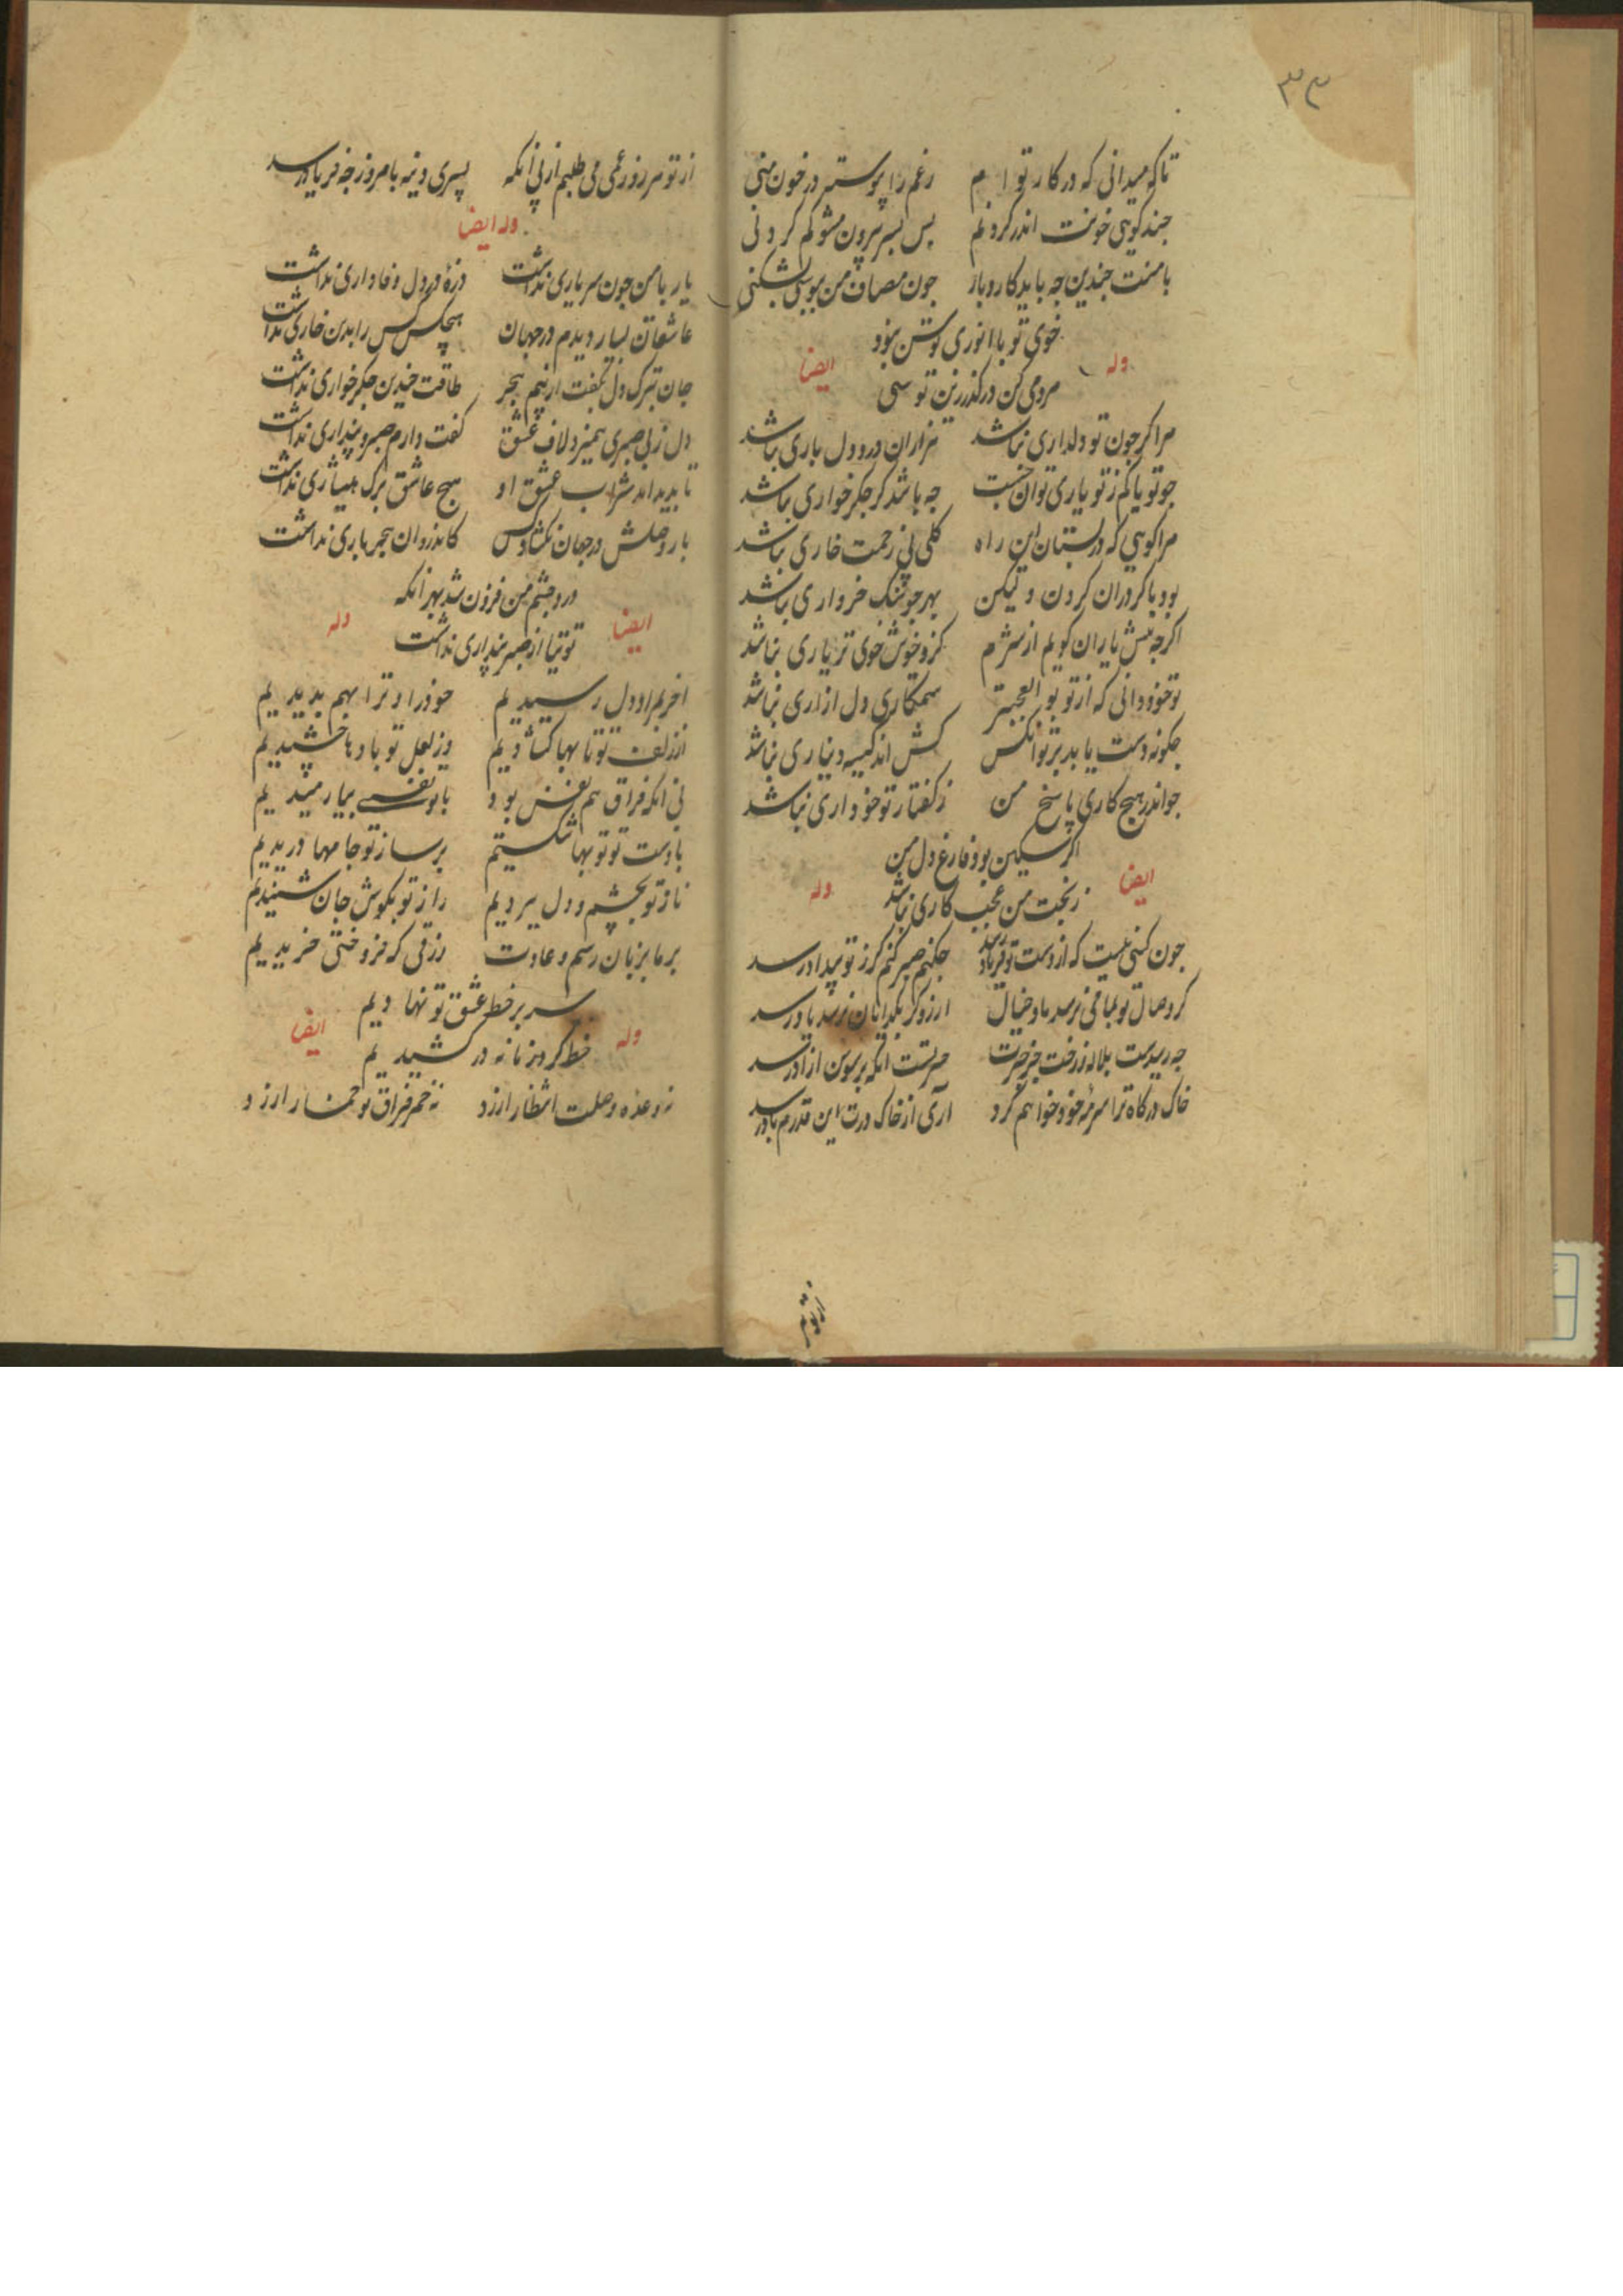 ۳۳
تا که میدانی که در کار تو ام رغم را پیوسته در خون منی
چند کویی خونت اندر کردنم پس بسر بیرون مشو کم کردنی
با منت چندین چه باید کاروبار چون مصاف من ببوسی بشکنی
خوی تو با انوری توسن بود
وله ایضا
مردمی کن درکذر زین توسنی
مرا کر چون تو دلداری نباشد هزاران درد دل باری نباشد
چو تو یا کم ز تو یاری توان جست چه باشد کر جکر خواری نباشد
مرا کویی که در بستان این راه کلی بی زحمت خاری نباشد
بود با کردران کردن ولیکن بهر جو سنک خرواری نباشد
اکرچه پیش یاران کویم از شرم کزو خوش خوی تر یاری نباشد
تو خود دانی که از تو بوالعجبتر ستمکاری دل ازاری نباشد
چکونه دست یابد بر تو انکس کش اندر کیسه دیناری نباشد
چو اندر هیچ کاری پاسخ من ز کفتار تو خود اری نباشد
اکر مسکین بود فارغ دل من
ایضا وله
ز بخت من عجب کاری نباشد
چون کسی نیست که از دست تو فریاد رسد چکنم صبر کنم کر ز تو بیداد رسد
کر وصال تو بما می نرسد ما و خیال ارزو کر بکدایان نرسد یاد رسد
چه رسیدست بلاله ز رخت جز حسرت سرتست انکه بر سوسن ازاد رسد
خاک درکاه ترا سرمه خود خواهم کرد آری از خاک درت این قدرم باد رسد
از تو هر
از تو هر روز غمی می طلبم از پی انکه پسری دینه با مروز چه فریاد رسد
وله ایضا
یار با من چون سر یاری نداشت ذره ٔ در دل وفاداری نداشت
عاشقان بسیار دیدم در جهان هیچکس کس را بدین خاری نداشت
جان بترک دل بکفت از بیم هجر طاقت چندین جکر خواری نداشت
دل ز بی صبری همیزد لاف عشق کفت دارم صبر و پنداری نداشت
تا پدید امد شراب عشق او هیچ عاشق برک هشیاری نداشت
بار وصلش در جهان نکشاد کس کاندروان هجر باری نداشت
درد چشم من فزون شد بهر انکه
ایضا وله
توتیا از صبر پنداری نداشت
اخر بمراد دل رسیدیم خود را و ترا بهم بدیدیم
از زلف تو تا بها کشادیم وز لعل تو بادها چشیدیم
بی انکه فراق هم نفس بود با تو نفسی بیارمیدیم
با دست تو توبها شکستیم بر ساز تو جامها دریدیم
ناز تو بچشم و دل بردیم راز تو بکوش جان شنیدیم
بر ما بزبان رسم و عادت رزقی که فروختی خریدیم
سر بر خط عشق تو نهادیم
وله ایضا
خط کرد زمانه درکشیدیم
نه وعده وصلت انتظار ارزد نه خمر فراق تو خمار ارزد